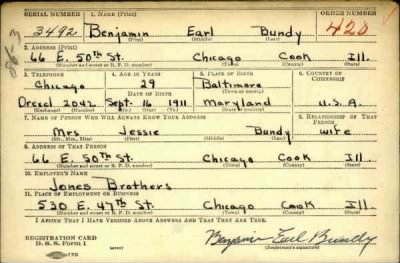 SERIAL NUMBER 1. NAME (Print) ORDER NUMBER
3492 Benjamin Earl Bundy 420
(First) (Middle) (Last)
2. ADDRESS (Print)
66 E. 50th St. Chicago Cook Ill.
(Number and street or R. F. D. number) (Town) (County) (State)
3. TELEPHONE 4. AGE IN YEARS 5. PLACE OF BIRTH 6. COUNTRY OF CITIZENSHIP
Chicago 29 Baltimore
DATE OF BIRTH (Town or county)
Drexel 2042 Sept. 16 1911 Maryland U.S.A.
(Exchange) (Number) (Mo.) (Day) (Yr.) (State or country)
7. NAME OF PERSON WHO WILL ALWAYS KNOW YOUR ADDRESS 8. RELATIONSHIP OF THAT PERSON
Mrs Jessie Bundy wife
(Mr., Mrs., Miss) (First) (Middle) (Last)
9. ADDRESS OF THAT PERSON
66 E. 50th St. Chicago Cook Ill
(Number and street or R. F. D. number) (Town) (County) (State)
10. EMPLOYER'S NAME
Jones Brothers
11. PLACE OF EMPLOYMENT OR BUSINESS
530 E. 47th St. Chicago Cook Ill
(Number and street or R. F. D. number) (Town) (County) (State)
I AFFIRM THAT I HAVE VERIFIED ABOVE ANSWERS AND THAT THEY ARE TRUE.
REGISTRATION CARD
D. S. S. Form 1 Benjamin Earl Bundy
(over) (Registrant's signature)